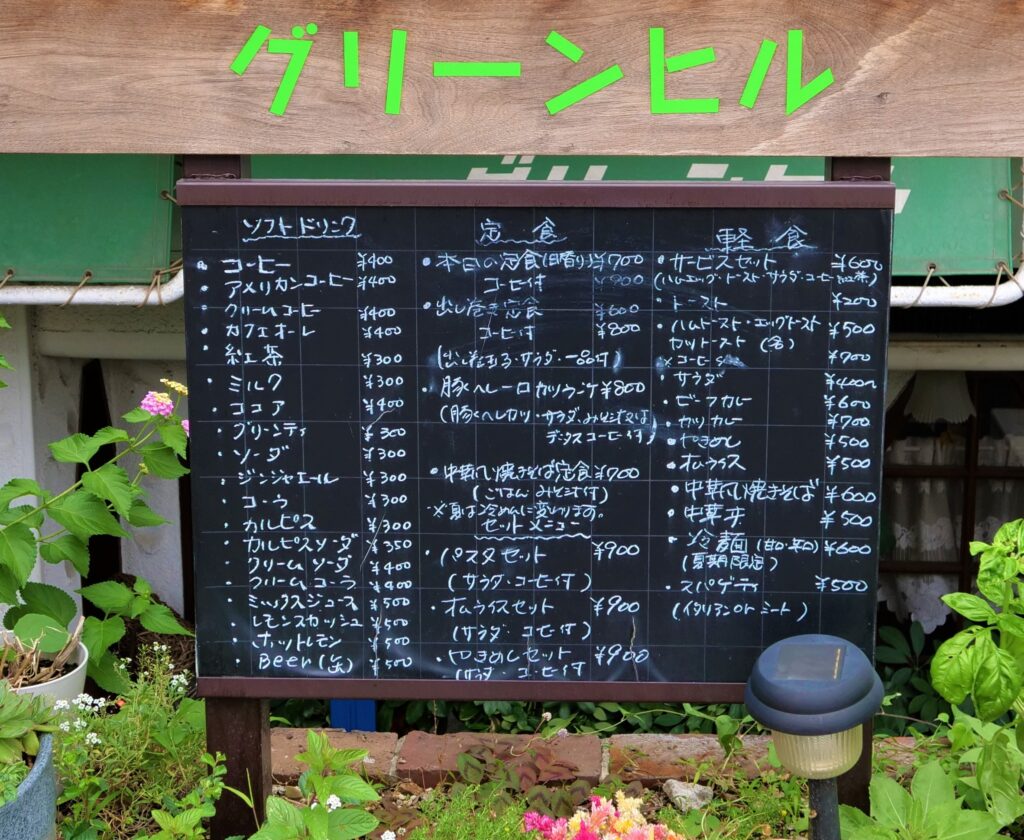 グリーンヒル
ソフトドリンク
・コーヒー ¥400
・アメリカンコーヒー ¥400
・クリームコーヒー ¥400
・カフェオーレ ¥400
・紅茶 ¥300
・ミルク ¥300
・ココア ¥400
・グリーンティ ¥300
・ソーダ ¥300
・ジンジャエール ¥300
・コーラ ¥300
・カルピス ¥300
・カルピスソーダ ¥350
・クリームソーダ ¥400
・クリームコーラ ¥400
・ミックスジュース ¥500
・レモンスカッシュ ¥500
・ホットレモン ¥500
・Beer(缶) ¥500
定食
・本日の定食(日替り) ¥700
コーヒー付 ¥900
・出し巻き定食 ¥600
コーヒー付 ¥800
(出し巻き・サラダ・一品付)
・豚ヘレ一口カツランチ ¥800
(豚ヘレカツ・サラダ・みそ汁又は
デミタスコーヒー付)
・中華風焼きそば定食 ¥700
(ごはん みそ汁付)
※夏は冷めんに変ります。
セットメニュー
・パスタセット ¥900
(サラダ・コーヒー付)
・オムライスセット ¥900
(サラダ・コーヒー付)
・やきめしセット ¥900
(サラダ・コーヒー付)
軽食
・サービスセット ¥600
(ハムエッグ・トースト・サラダ・コーヒー又は紅茶)
・トースト ¥200
・ハムトースト・エッグトースト ¥500
カツトースト(各)
×コーヒー付 ¥700
・サラダ ¥400
・ビーフカレー ¥600
・カツカレー ¥700
・やきめし ¥500
・オムライス ¥500
・中華風焼きそば ¥600
・中華丼 ¥500
・冷麺(甘口・辛口) ¥600
(夏期限定)
・スパゲティ ¥500
(イタリアン or ミート)